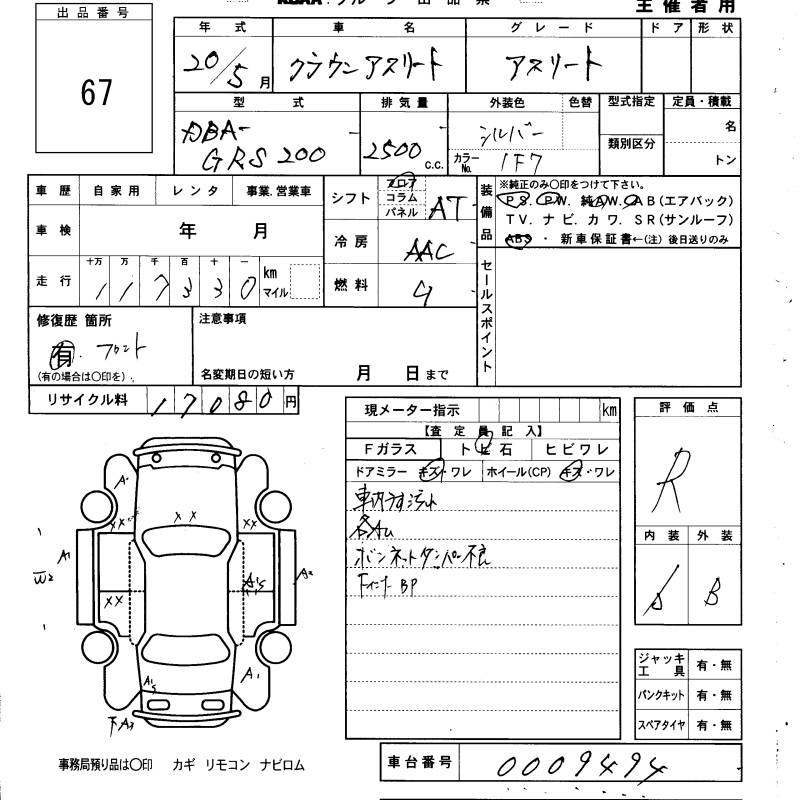 出品番号
67
主催者用
年式 車名 グレード ドア 形状
20/5月 クラウンアスリート アスリート
型式 排気量 外装色 色替 型式指定 定員・積載
DBA-
GRS200
2500 c.c.
シルバー
カラーNo. 1F7
類別区分
名
トン
車歴 自家用 レンタ 事業.営業車
車検 年 月
走行 十万 万 千 百 十 一
117330 km マイル
シフト フロア コラム パネル AT
冷房 AAC
燃料 G
装備品
※純正のみ○印をつけて下さい。
PS. PW. 純AW. AB(エアバック)
TV. ナビ. カワ. SR(サンルーフ)
ABS ・ 新車保証書←(注) 後日送りのみ
セールスポイント
修復歴 箇所
有. フロント
(有の場合は○印を)
注意事項
名変期日の短い方 月 日まで
リサイクル料 17080円
現メーター指示 km
【査定員記入】
Fガラス トビ石 ヒビワレ
ドアミラー キズ・ワレ ホイール(CP) キズ・ワレ
ボンネットダンパー不良
BP
評価点
R
内装 外装
B
ジャッキ工具 有・無
パンクキット 有・無
スペアタイヤ 有・無
A1
W2
A2
XX
XX
XX
XX
A1
下A3
事務局預り品は○印 カギ リモコン ナビロム
車台番号 0009494